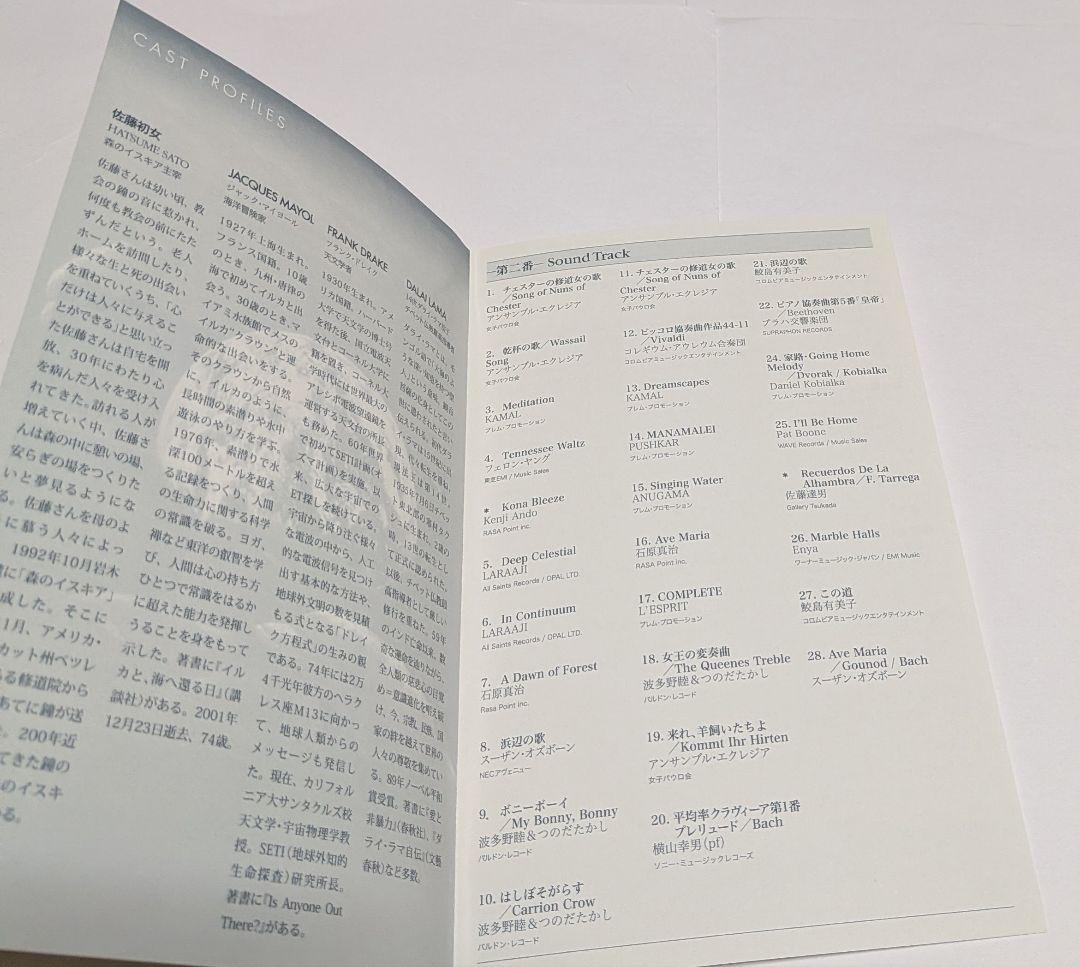 CAST PROFILES
佐藤初女
HATSUME SATO
森のイスキア主宰
佐藤さんは幼い頃、教
会の鐘の音に惹かれ、
何度も教会の前にたた
ずんだという。老人
ホームを訪問したり、
様々な生と死の出会い
を重ねていくうち、「心
だけは人々に与えるこ
とができる」と思い立っ
た佐藤さんは自宅を開
放、30年にわたり心
を病んだ人々を受け入
れてきた。訪れる人が
増えていく中、佐藤さ
んは森の中に憩いの場、
安らぎの場をつくりた
いと夢見るようにな
る。佐藤さんを母のよ
に慕う人々によっ
1992年10月岩木
に「森のイスキア」
成した。そこに
1月、アメリカ・
カット州ベツレ
る修道院から
あてに鐘が送
。200年近
てきた鐘の
のイスキ
る。
JACQUES MAYOL
ジャック・マイヨール
海洋冒険家
1927年上海生まれ、
フランス国籍。10歳
のとき、九州・唐津の
海で初めてイルカと出
会う。30歳のとき、マ
イアミ水族館でメスの
イルカ“クラウン”と運
命的な出会いをする。
そのクラウンから自然
に、イルカのように、
長時間の素潜りや水中
遊泳のやり方を学ぶ。
1976年、素潜りで水
深100メートルを超え
る記録をつくり、人間
の生命力に関する科学
の常識を破る。ヨガ、
禅など東洋の叡智を学
び、人間は心の持ち方
ひとつで常識をはるか
に超えた能力を発揮し
うることを身をもって
示した。著書に『イル
カと、海へ還る日』(講
談社)がある。2001年
12月23日逝去、74歳。
FRANK DRAKE
フランク・ドレイク
天文学者
1930年生まれ。アメ
リカ国籍。ハーバード
大学で天文学の博士号
を得た後、国立電波天
文台とコーネル大学に
籍を置き、コーネル大
学時代には世界最大の
アレシボ電波望遠鏡を
運営する天文台の所長
も務めた。60年世界
で初めてSETI計画(オ
ズマ計画)を実施。以
来、広大な宇宙での
ET探しを続けている。
宇宙から降り注ぐ様々
な電波の中から、人工
的な電波信号を見つけ
出す基本的な方法や、
地球外文明の数を見積
もる式となる「ドレイ
ク方程式」の生みの親
である。74年には2万
4千光年彼方のヘラク
レス座M13に向かっ
て、地球人類からの
メッセージも発信し
た。現在、カリフォル
ニア大サンタクルズ校
天文学・宇宙物理学教
授。SETI(地球外知的
生命探査)研究所長。
著書に『Is Anyone Out
There?』がある。
DALAI LAMA
修行を重ねた。59年
のインド亡命以来、数
奇な運命を辿りながら、
全人類の慈悲心の目覚
め＝意識進化を唱え続
け、今、宗教、民族、国
家の絆を越えて世界の
人々の尊敬を集めてい
る。89年ノーベル平和
賞受賞。著書に『愛と
非暴力』(春秋社)、『ダ
ライ・ラマ自伝』(文藝
春秋)など多数。
—第二番— Sound Track
1. チェスターの修道女の歌
／Song of Nuns of
Chester
アンサンブル・エクレジア
女子パウロ会
2. 乾杯の歌／Wassail
Song
アンサンブル・エクレジア
女子パウロ会
3. Meditation
KAMAL
プレム・プロモーション
4. Tennessee Waltz
フェロン・ヤング
東芝EMI / Music Sales
* Kona Bleeze
Kenji Ando
RASA Point inc.
5. Deep Celestial
LARAAJI
All Saints Records / OPAL LTD.
6. In Continuum
LARAAJI
All Saints Records / OPAL LTD.
7. A Dawn of Forest
石原真治
Rasa Point inc.
8. 浜辺の歌
スーザン・オズボーン
NECアヴェニュー
9. ボニーボーイ
／My Bonny, Bonny
波多野睦美＆つのだたかし
パルドン・レコード
10. はしぼそがらす
／Carrion Crow
波多野睦美＆つのだたかし
パルドン・レコード
11. チェスターの修道女の歌
／Song of Nuns of
Chester
アンサンブル・エクレジア
女子パウロ会
12. ピッコロ協奏曲作品44-11
／Vivaldi
コレギウム・アウレウム合奏団
コロムビアミュージックエンタテインメント
13. Dreamscapes
KAMAL
プレム・プロモーション
14. MANAMALEI
PUSHKAR
プレム・プロモーション
15. Singing Water
ANUGAMA
プレム・プロモーション
16. Ave Maria
石原真治
RASA Point inc.
17. COMPLETE
L'ESPRIT
プレム・プロモーション
18. 女王の変奏曲
／The Queenes Treble
波多野睦美＆つのだたかし
パルドン・レコード
19. 来れ、羊飼いたちよ
／Kommt Ihr Hirten
アンサンブル・エクレジア
女子パウロ会
20. 平均率クラヴィーア第1番
プレリュード／Bach
横山幸男(pf)
ソニー・ミュージックレコーズ
21. 浜辺の歌
鮫島有美子
コロムビアミュージックエンタテインメント
22. ピアノ協奏曲第5番「皇帝」
／Beethoven
プラハ交響楽団
SUPRAPHON RECORDS
24. 家路・Going Home
Melody
／Dvorak / Kobialka
Daniel Kobialka
プレム・プロモーション
25. I'll Be Home
Pat Boone
WAVE Records / Music Sales
* Recuerdos De La
Alhambra／F. Tarrega
佐藤達男
Gallery Tsukada
26. Marble Halls
Enya
ワーナーミュージック・ジャパン / EMI Music
27. この道
鮫島有美子
コロムビアミュージックエンタテインメント
28. Ave Maria
／Gounod / Bach
スーザン・オズボーン